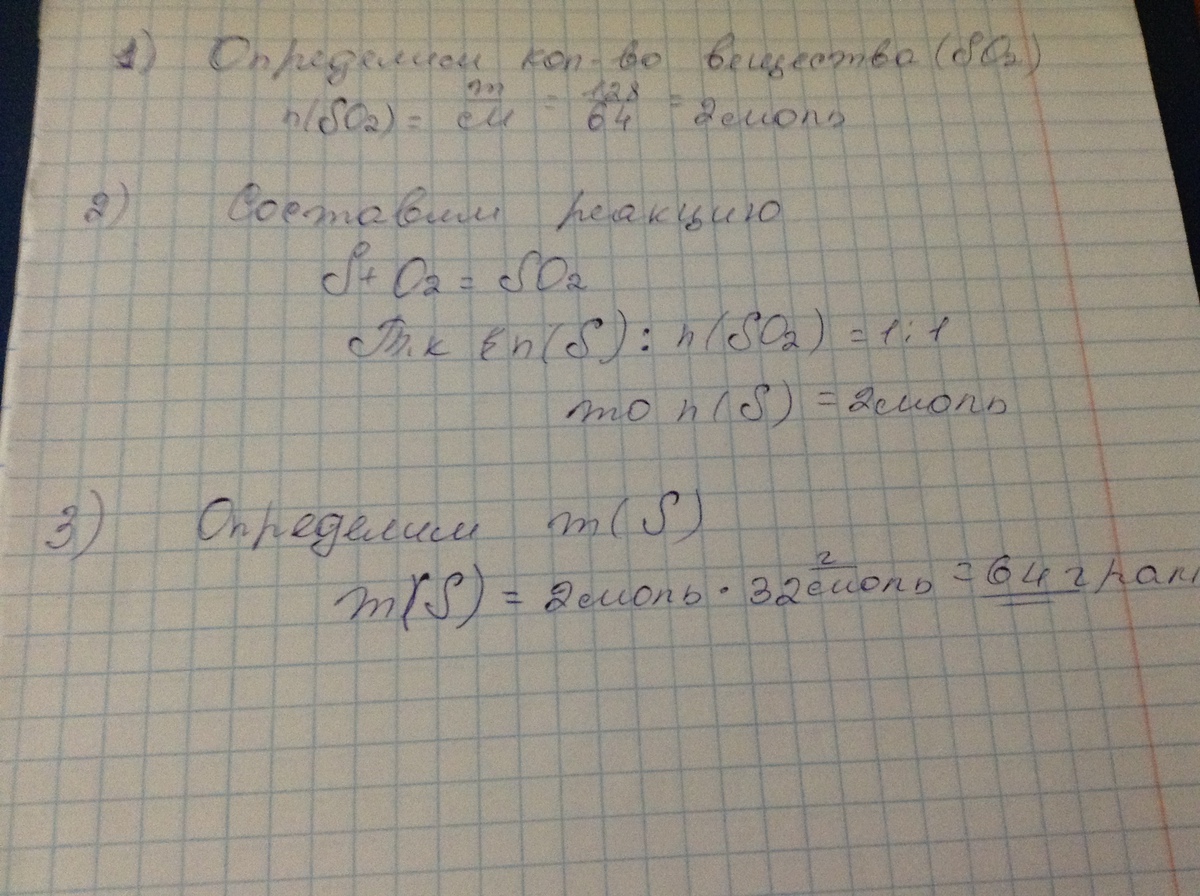 1) Определим кол-во вещества (SO₂)
n(SO₂) = m/M = 128/64 = 2 моль
2) Составим реакцию
S + O₂ = SO₂
Т.к n(S) : n(SO₂) = 1:1
то n(S) = 2 моль
3) Определим m(S)
m(S) = 2 моль · 32 г/моль = 64 грам